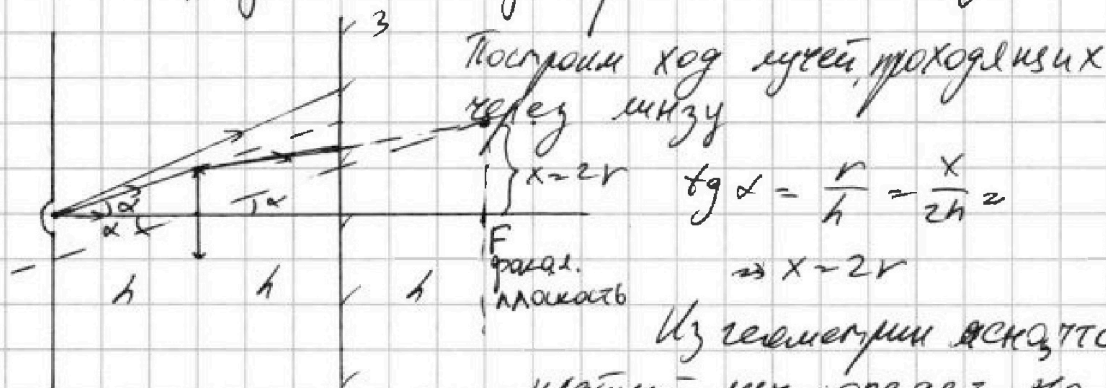 З
Построим ход лучей, проходящих
через линзу
x = 2r
tg α = r/h = x/2h =
⇒ x = 2r
α
α
α
F
фокал.
плоскость
h h h
Из геометрии ясно, что